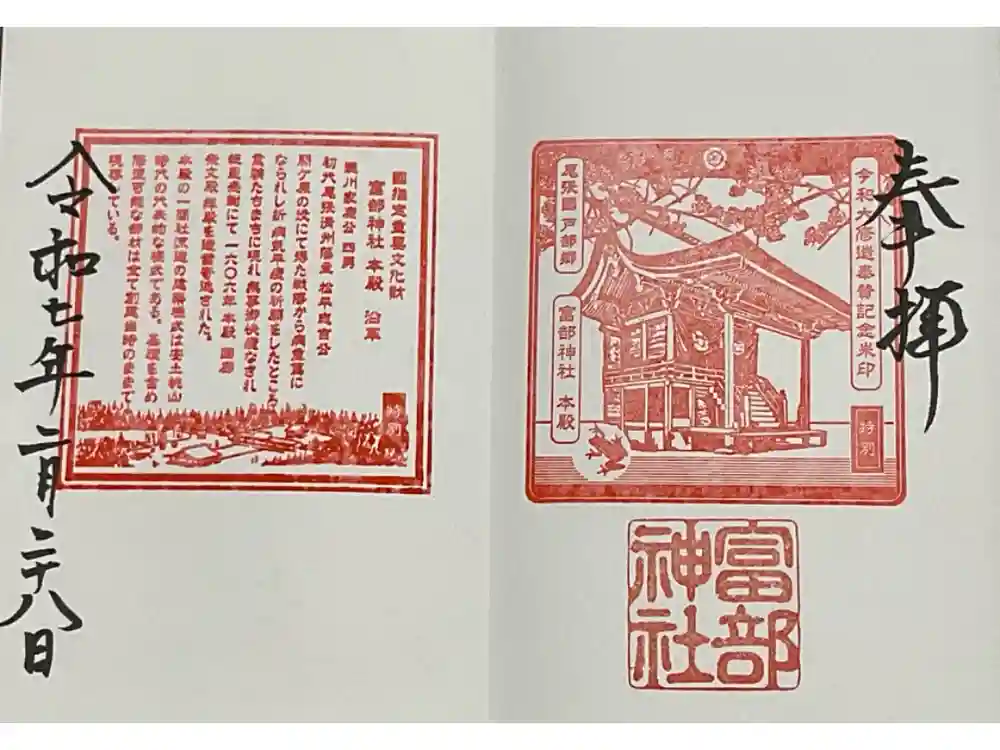 奉拝
令和大修造奉賛記念朱印
特別
尾張國戸部郷
富部神社 本殿
富部神社
国指定重要文化財
富部神社 本殿 沿革
徳川家康公 四男
初代尾張清州藩主 松平忠吉公
関ケ原の役にて得た戦傷から病重篤に
なられし折 病気平癒の祈願をしたところ
霊験たちまちに現れ 無事御快癒なされ
一六〇六年 本殿 回廊
祭文殿 拝殿を
本殿の一間社流造の建築様式は安土桃山
時代の代表的な様式である。基礎を含め
可能な部材は全て創建当時のままで
現存している。
令和七年二月二十八日